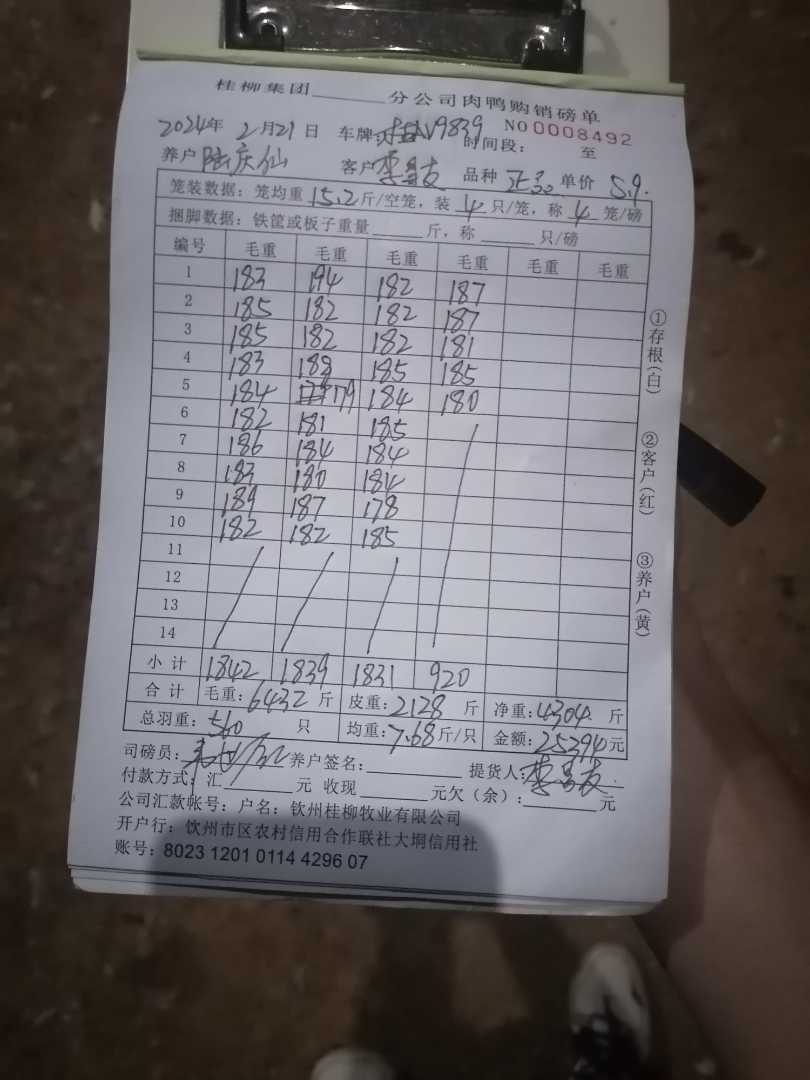 桂柳集团______分公司肉鸭购销磅单
2024年 2月21日 车牌:V9839 NO 0008492
时间段: 至
养户 陆庆仙 客户 李 友 品种 单价 5.9.
笼装数据: 笼均重 15.2 斤/空笼, 装 4 只/笼, 称 4 笼/磅
捆脚数据: 铁筐或板子重量______斤, 称______只/磅
编号 毛重 毛重 毛重 毛重 毛重 毛重
1 183 194 182 187
2 185 182 182 187
3 185 182 182 181
4 183 188 185 185
5 184 179 184 180
6 182 181 185
7 186 184 184
8 183 180 184
9 189 187 178
10 182 182 185
11
12
13
14
小计 1842 1839 1831 920
合计 毛重: 6432 斤 皮重: 2128 斤 净重: 4304. 斤
总羽重: 560 只 均重: 7.68 斤/只 金额: 25394 元
司磅员: 养户签名:______ 提货人: 李 友
付款方式: 汇______元 收现______元欠(余):______元
公司汇款帐号: 户名: 钦州桂柳牧业有限公司
开户行: 钦州市区农村信用合作联社大垌信用社
账号: 8023 1201 0114 4296 07
①存根(白)
②客户(红)
③养户(黄)